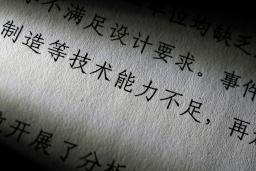 位均缺乏
不满足设计要求。事件
制造等技术能力不足，再
开展了分析